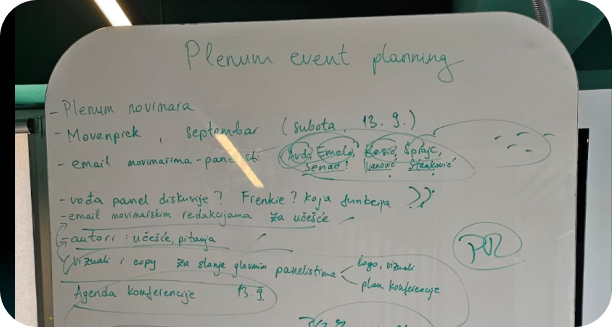 Plenum event planning
- Plenum novinara
- Movenpick, septembar (subota, 13. 9.)
- email novinarima - panelisti (Avdo, Emela, Kesić, Šprajc,
Senad! Ivanović Stanković
- vođa panel diskusije? Frenkie? koja funkcija ??
- email novinarskim redakcijama za učešće
- autori: učešće, pitanja
vizuali i copy za slanje glavnim panelistima < logo, vizuali
plan konferencije
PR
Agenda konferencije 13. 9.